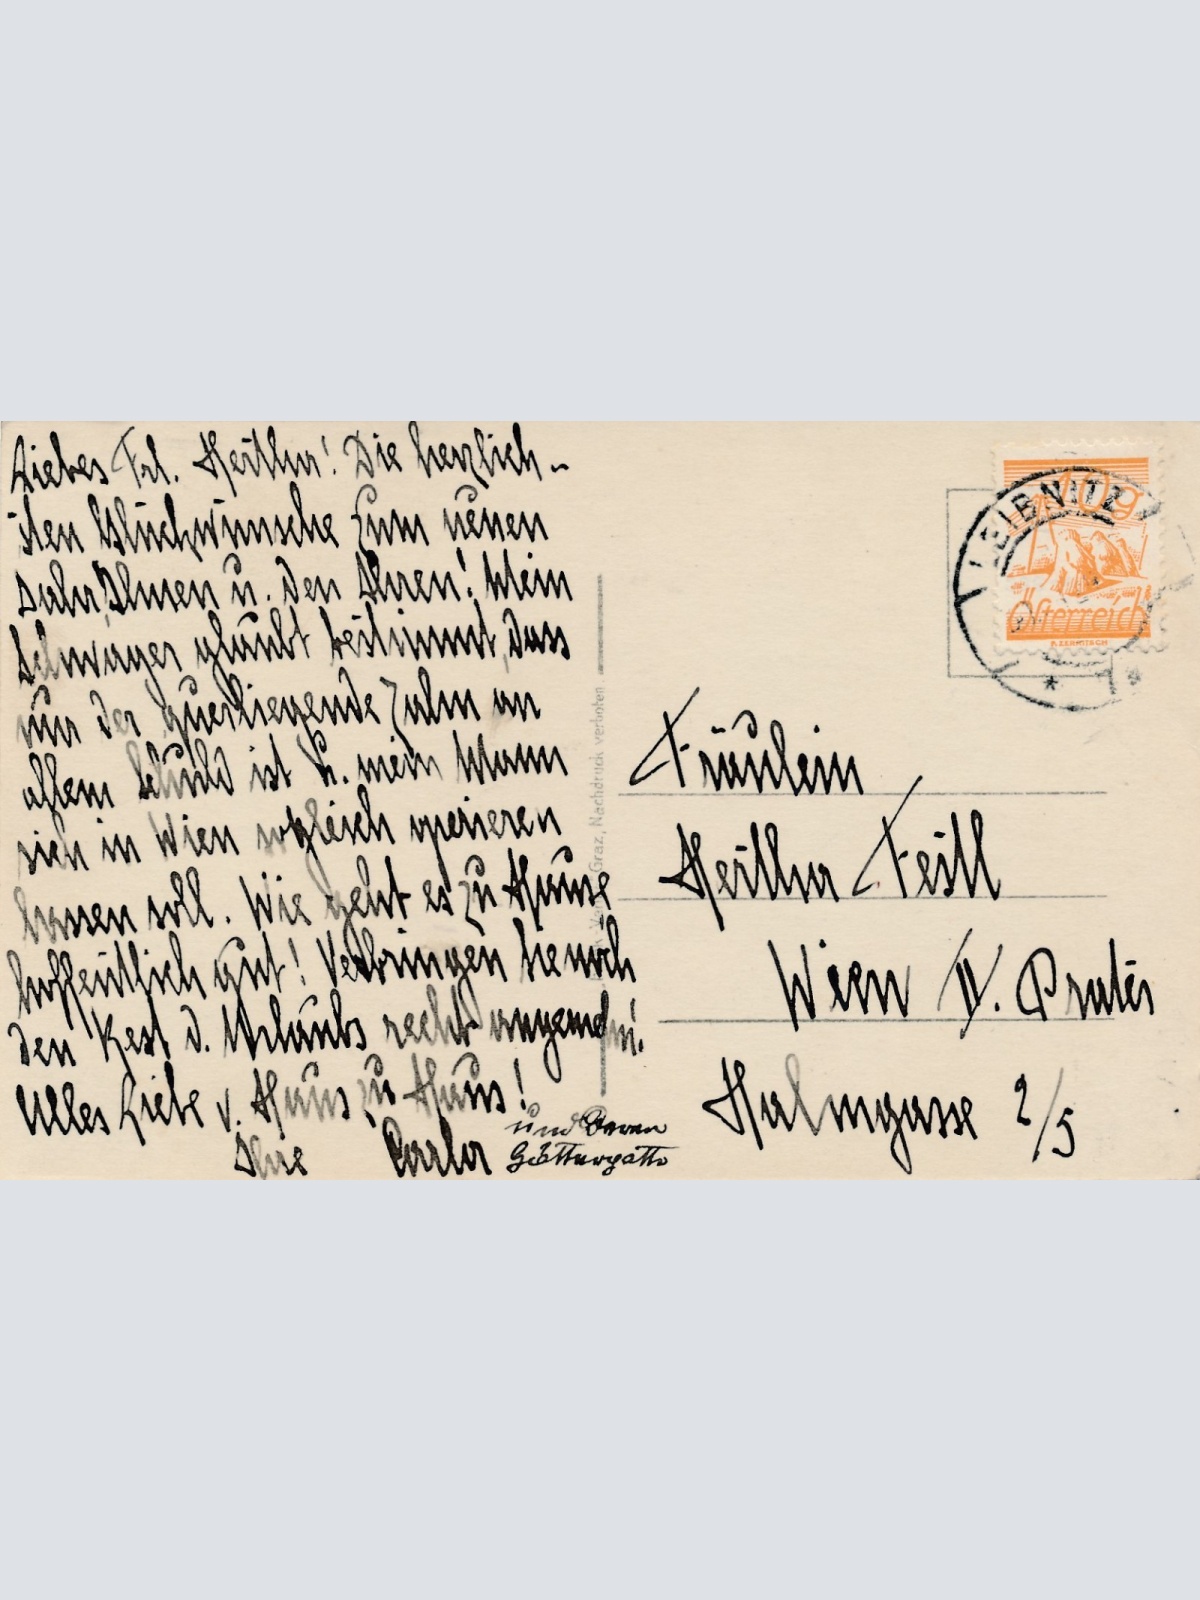 Liebes Frl. Hertha! Die herzlich-
sten Glückwünsche zum neuen
Jahr, Ihnen u. den Ihren! Mein
Schwager glaubt bestimmt, dass
nur der querliegende Zahn an
allem Schuld ist u. mein Mann
sich in Wien sogleich operieren
lassen soll. Wie geht es zu Hause
hoffentlich gut! Verbringen Sie noch
den Rest d. Urlaubs recht angenehm!
Alles Liebe v. Haus zu Haus!
Ihre Carla
und deren
Göttergatte
Graz, Nachdruck verboten
LEIBNITZ
10g
Österreich
Fräulein
Hertha Festl
Wien II. Prater
Halmgasse 2/5